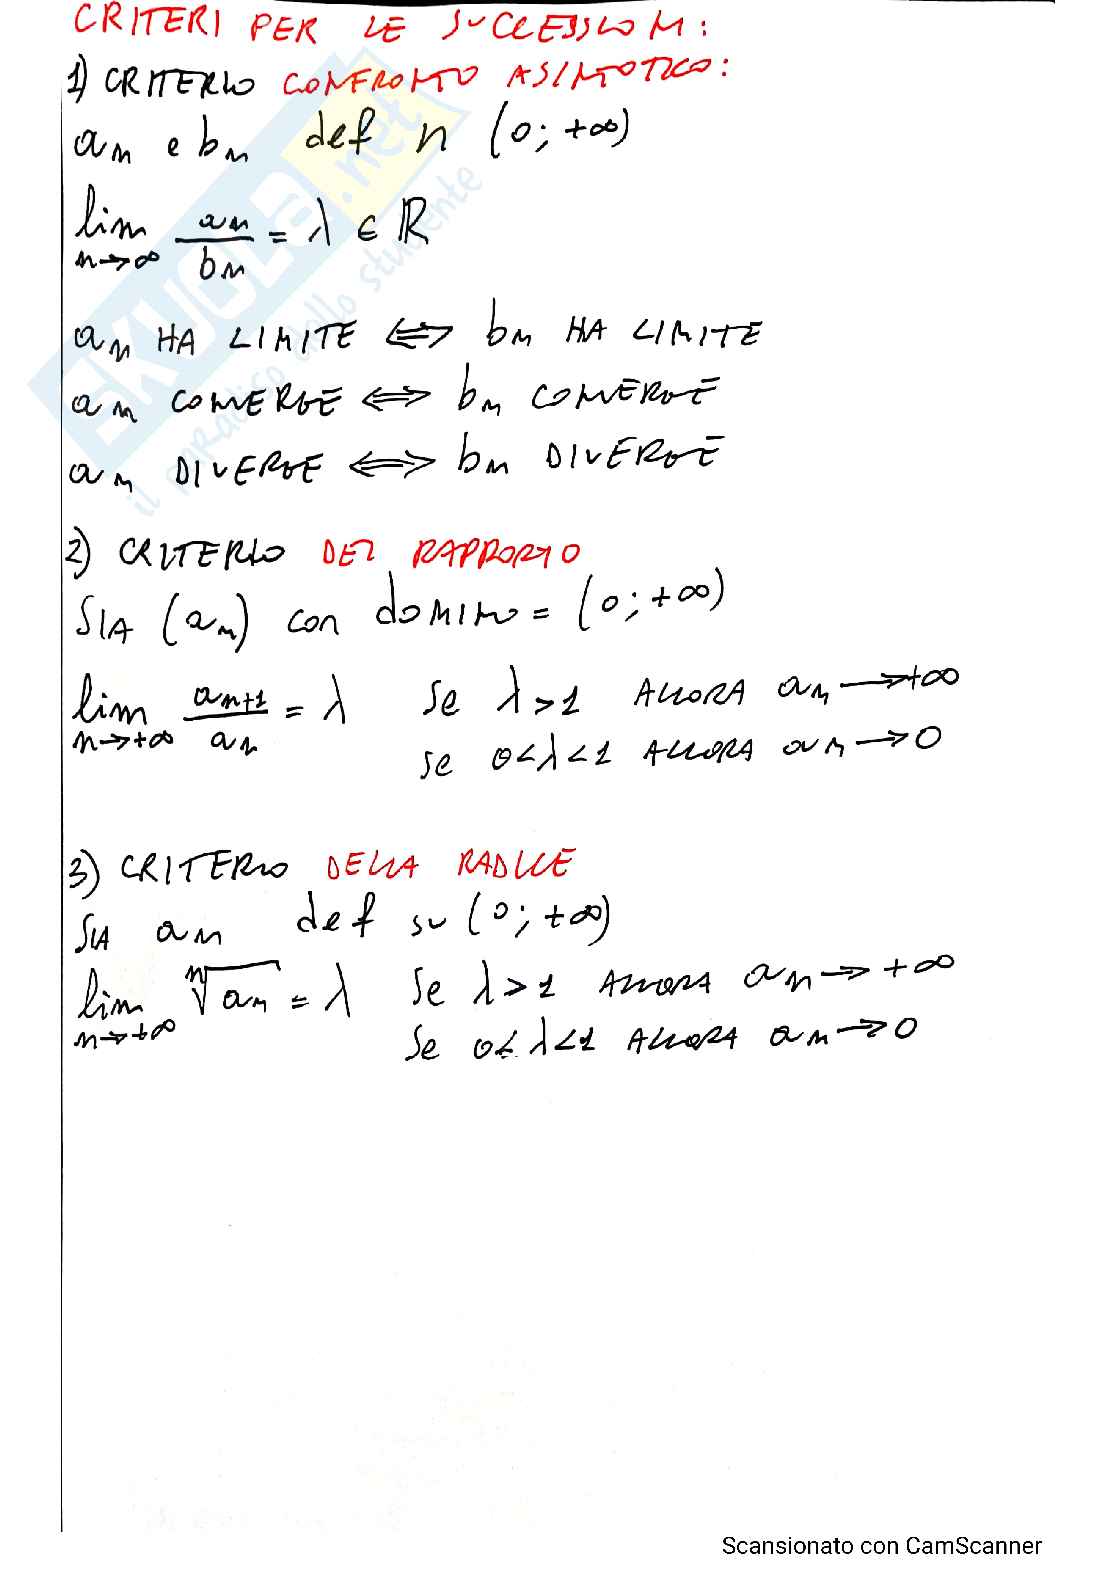 CRITERI PER LE SUCCESSIONI:
1) CRITERIO CONFRONTO ASINTOTICO:
an e bn def n (0; +∞)
lim n→∞ an/bn = λ ∈ ℝ
an HA LIMITE ⟺ bn HA LIMITE
an CONVERGE ⟺ bn CONVERGE
an DIVERGE ⟺ bn DIVERGE
2) CRITERIO DEL RAPPORTO
SIA (an) con dominio = (0; +∞)
lim n→+∞ an+1/an = λ Se λ>1 ALLORA an→+∞
se 0<λ<1 ALLORA an→0
3) CRITERIO DELLA RADICE
SIA an def su (0; +∞)
lim n→+∞ ⁿ√an = λ Se λ>1 ALLORA an→+∞
Se 0<λ<1 ALLORA an→0
SKUOLA.net
il paradiso dello studente
Scansionato con CamScanner